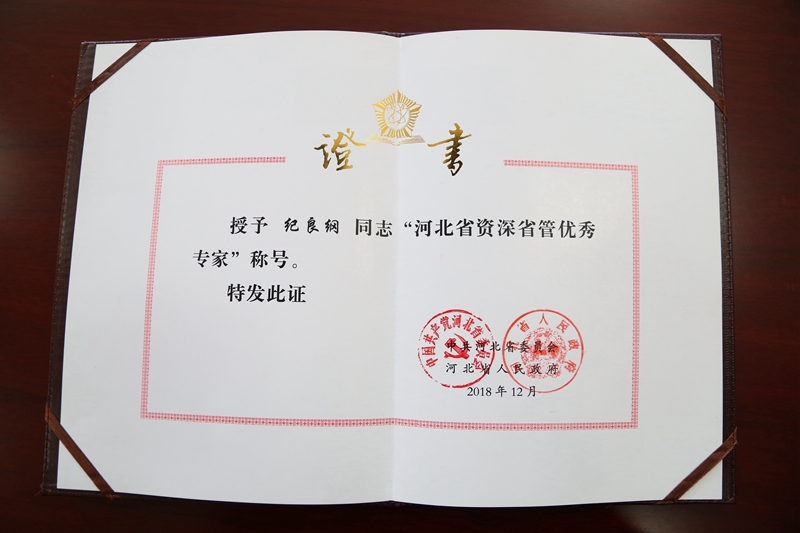 證書
授予 纪良纲 同志“河北省资深省管优秀
专家”称号。
特发此证
中共河北省委员会
河北省人民政府
2018年12月
中国共产党河北省委员会
省人民政府